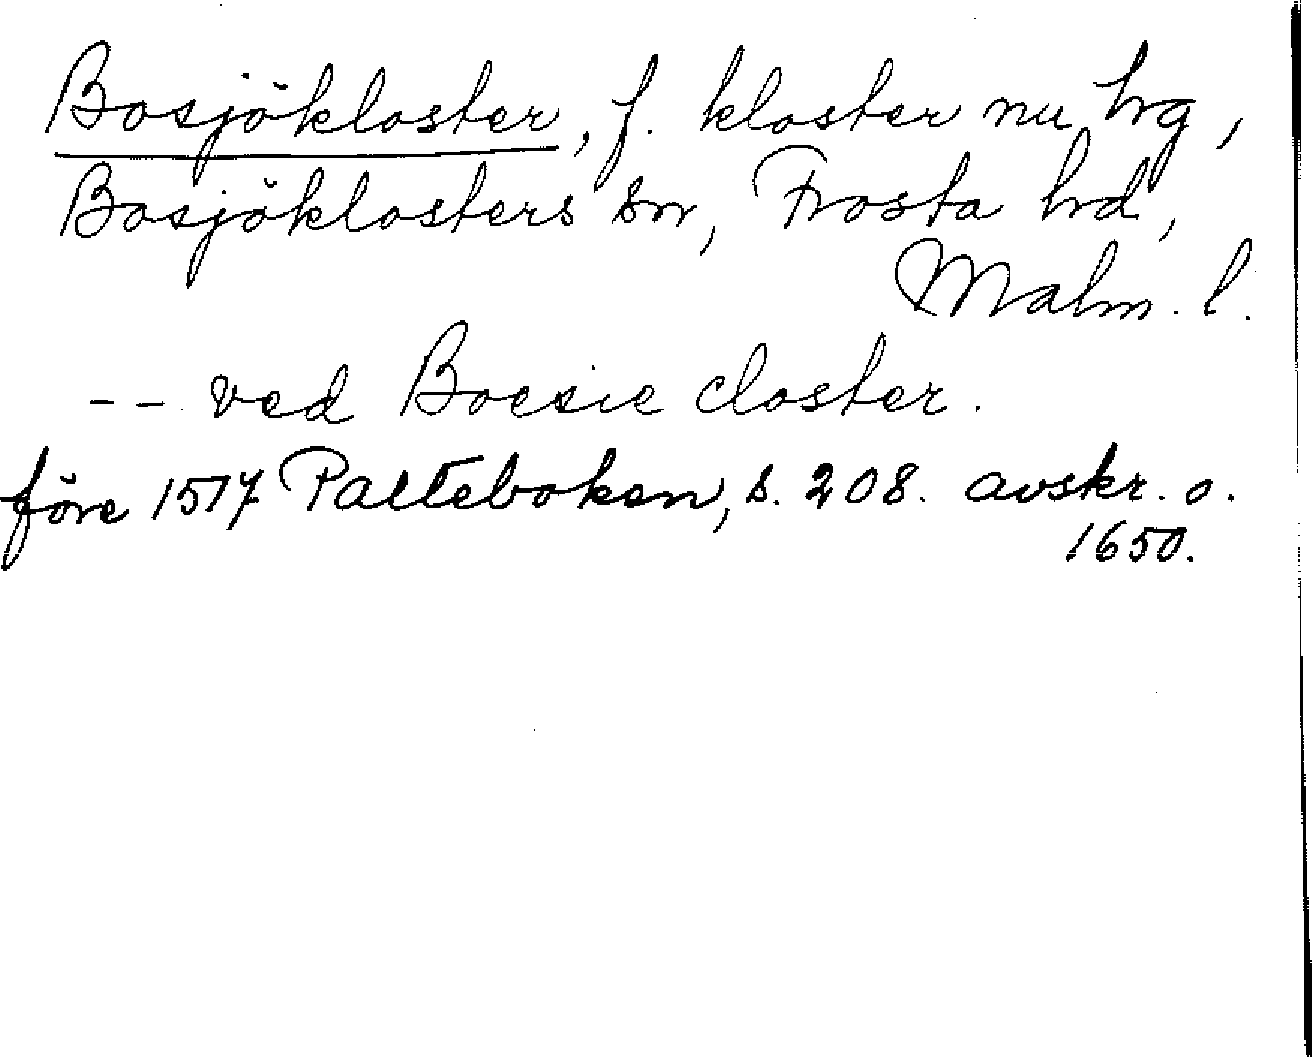 Bosjökloster, f. kloster nu hrg,
Bosjöklosters sn, Frosta hrd,
Malm. l.
-- ved Boesie closter.
före 1517 Palteboken, s. 208. avskr. o.
1650.